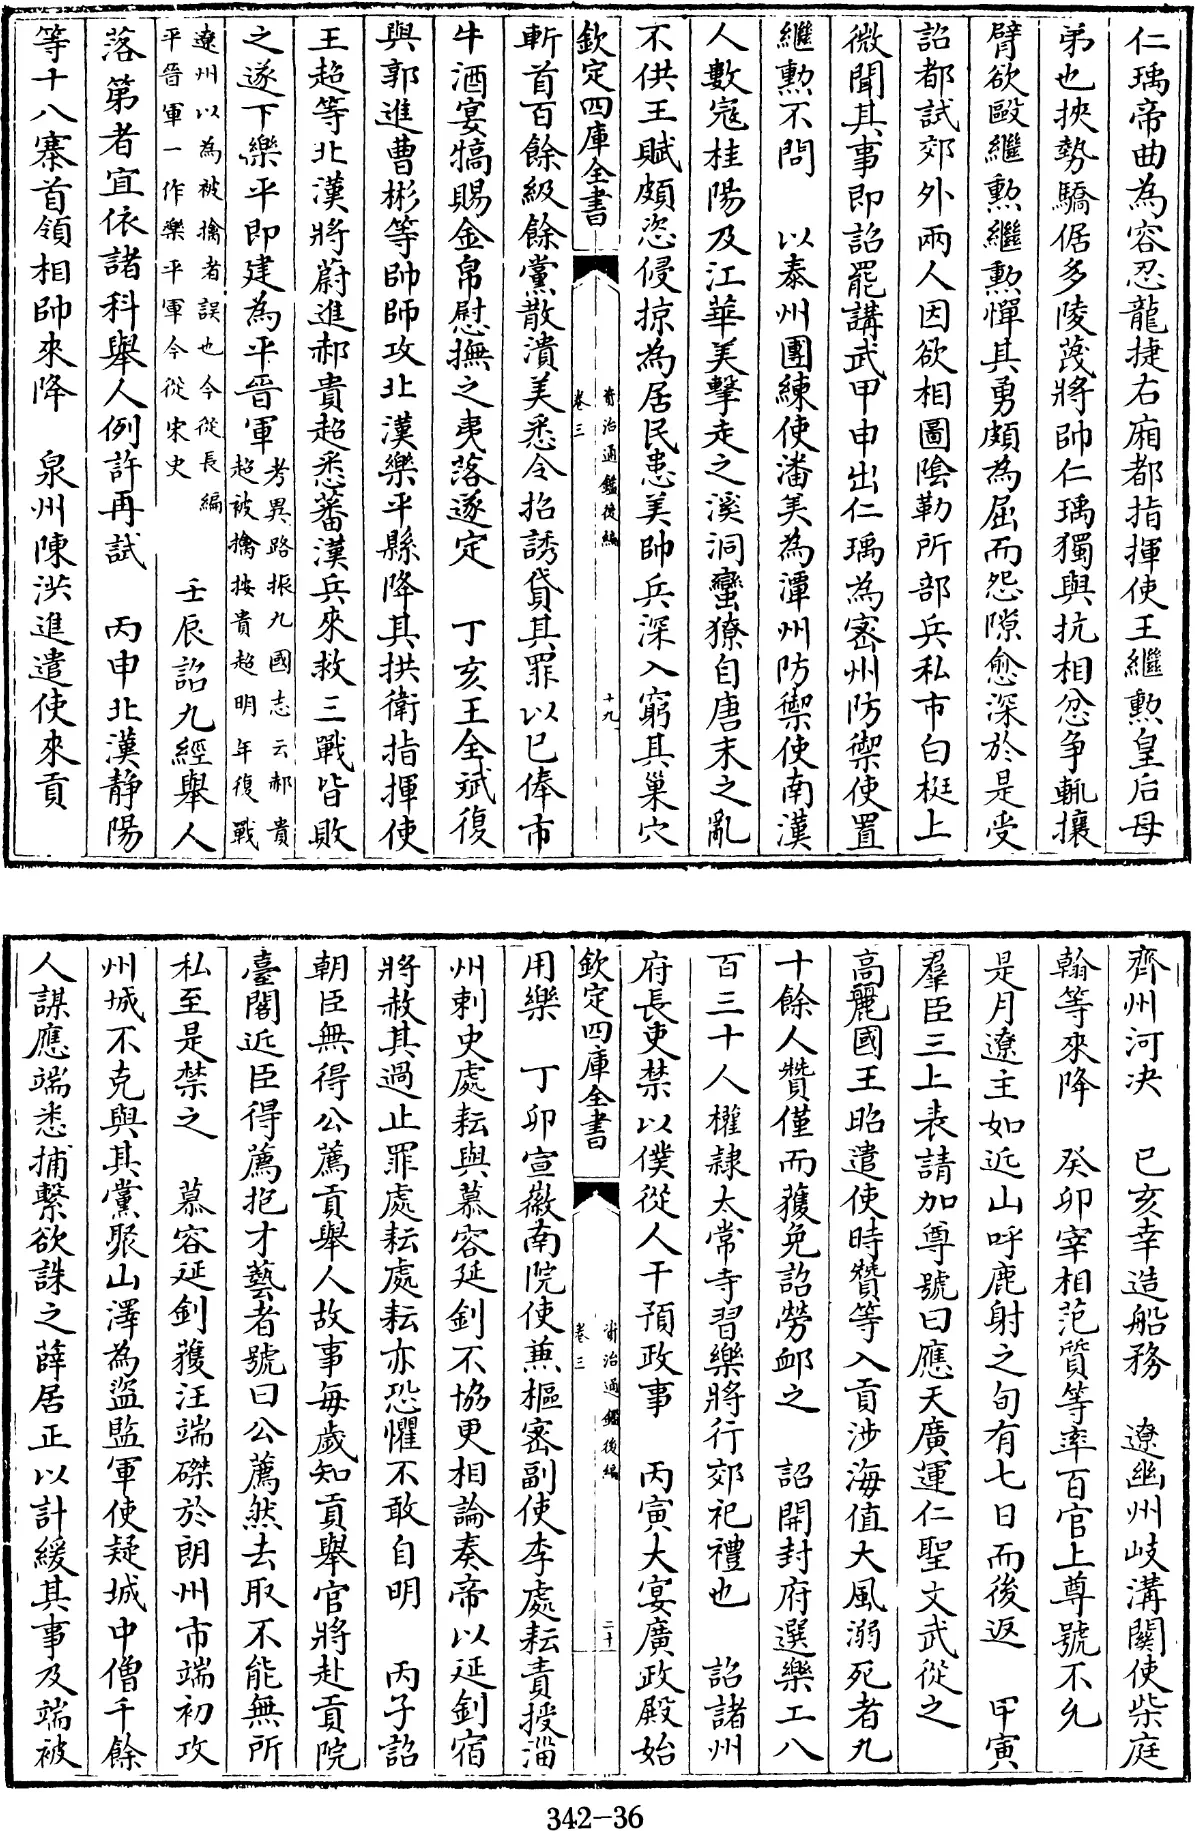 仁瑀帝曲為容忍龍捷右廂都指揮使王繼勲皇后母
弟也挾勢驕倨多陵蔑將帥仁瑀獨與抗相忿争輒攘
臂欲毆繼勲繼勲憚其勇頗為屈而怨隙愈深於是受
詔都試郊外兩人因欲相圖陰勒所部兵私市白梃上
微聞其事即詔罷講武甲申出仁瑀為密州防禦使置
繼勲不問　以泰州團練使潘美為潭州防禦使南漢
人數寇桂陽及江華美擊走之溪洞蠻獠自唐末之亂
不供王賦頗恣侵掠為居民患美帥兵深入窮其巢穴
欽定四庫全書
資治通鑑後編
卷三
十九
斬首百餘級餘黨散潰美悉令招誘貸其罪以已俸市
牛酒宴犒賜金帛慰撫之夷落遂定　丁亥王全斌復
與郭進曹彬等帥師攻北漢樂平縣降其拱衛指揮使
王超等北漢將蔚進郝貴超悉蕃漢兵來救三戰皆敗
之遂下樂平即建為平晉軍考異路振九國志云郝貴
超被擒按貴超明年復戰
遼州以為被擒者誤也今從長編
平晉軍一作樂平軍今從宋史
壬辰詔九經舉人
落第者宜依諸科舉人例許再試　丙申北漢静陽
等十八寨首領相帥來降　泉州陳洪進遣使來貢
齊州河決　己亥幸造船務　遼幽州岐溝關使柴庭
翰等來降　癸卯宰相范質等率百官上尊號不允
是月遼主如近山呼鹿射之旬有七日而後返　甲寅
羣臣三上表請加尊號曰應天廣運仁聖文武從之
高麗國王昭遣使時贊等入貢涉海值大風溺死者九
十餘人贊僅而獲免詔勞䘏之　詔開封府選樂工八
百三十人權隸太常寺習樂將行郊祀禮也　詔諸州
府長吏禁以僕從人干預政事　丙寅大宴廣政殿始
欽定四庫全書
資治通鑑後編
卷三
二十
用樂　丁卯宣徽南院使兼樞密副使李處耘責授淄
州刺史處耘與慕容延釗不協更相論奏帝以延釗宿
將赦其過止罪處耘處耘亦恐懼不敢自明　丙子詔
朝臣無得公薦貢舉人故事毎歲知貢舉官將赴貢院
臺閣近臣得薦抱才藝者號曰公薦然去取不能無所
私至是禁之　慕容延釗獲汪端磔於朗州市端初攻
州城不克與其黨聚山澤為盜監軍使疑城中僧千餘
人謀應端悉捕繫欲誅之薛居正以計緩其事及端被
342-36